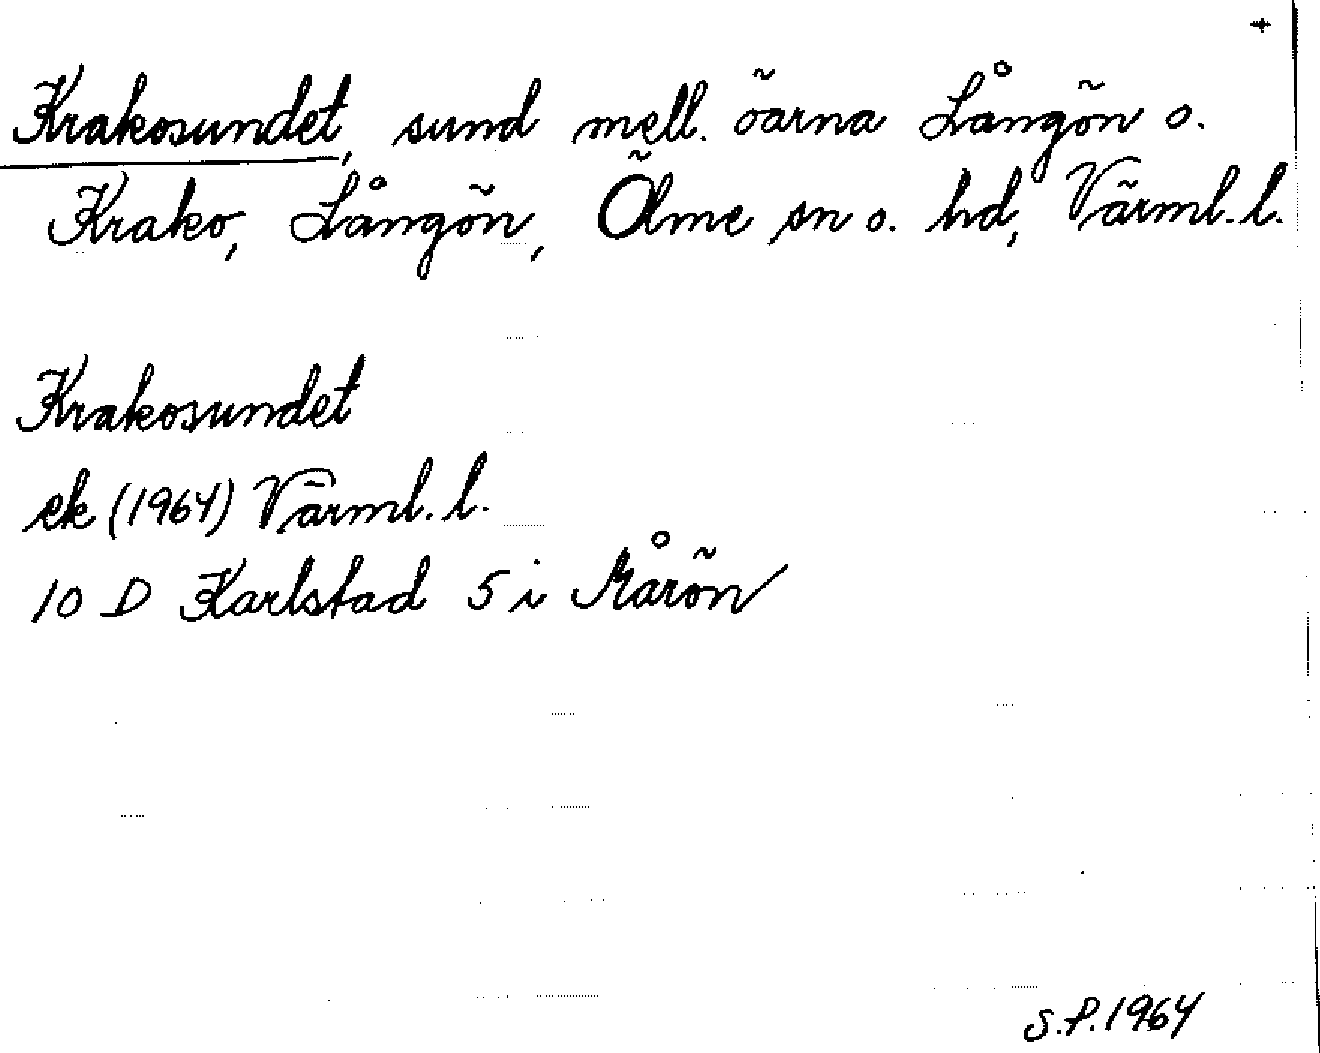 +
Krakosundet, sund mell. öarna Långön o.
Krako, Långön, Ölme sn o. hd, Värml. l.
Krakosundet
ek (1964) Värml. l.
10 D Karlstad 5 i Årön
S.P. 1964